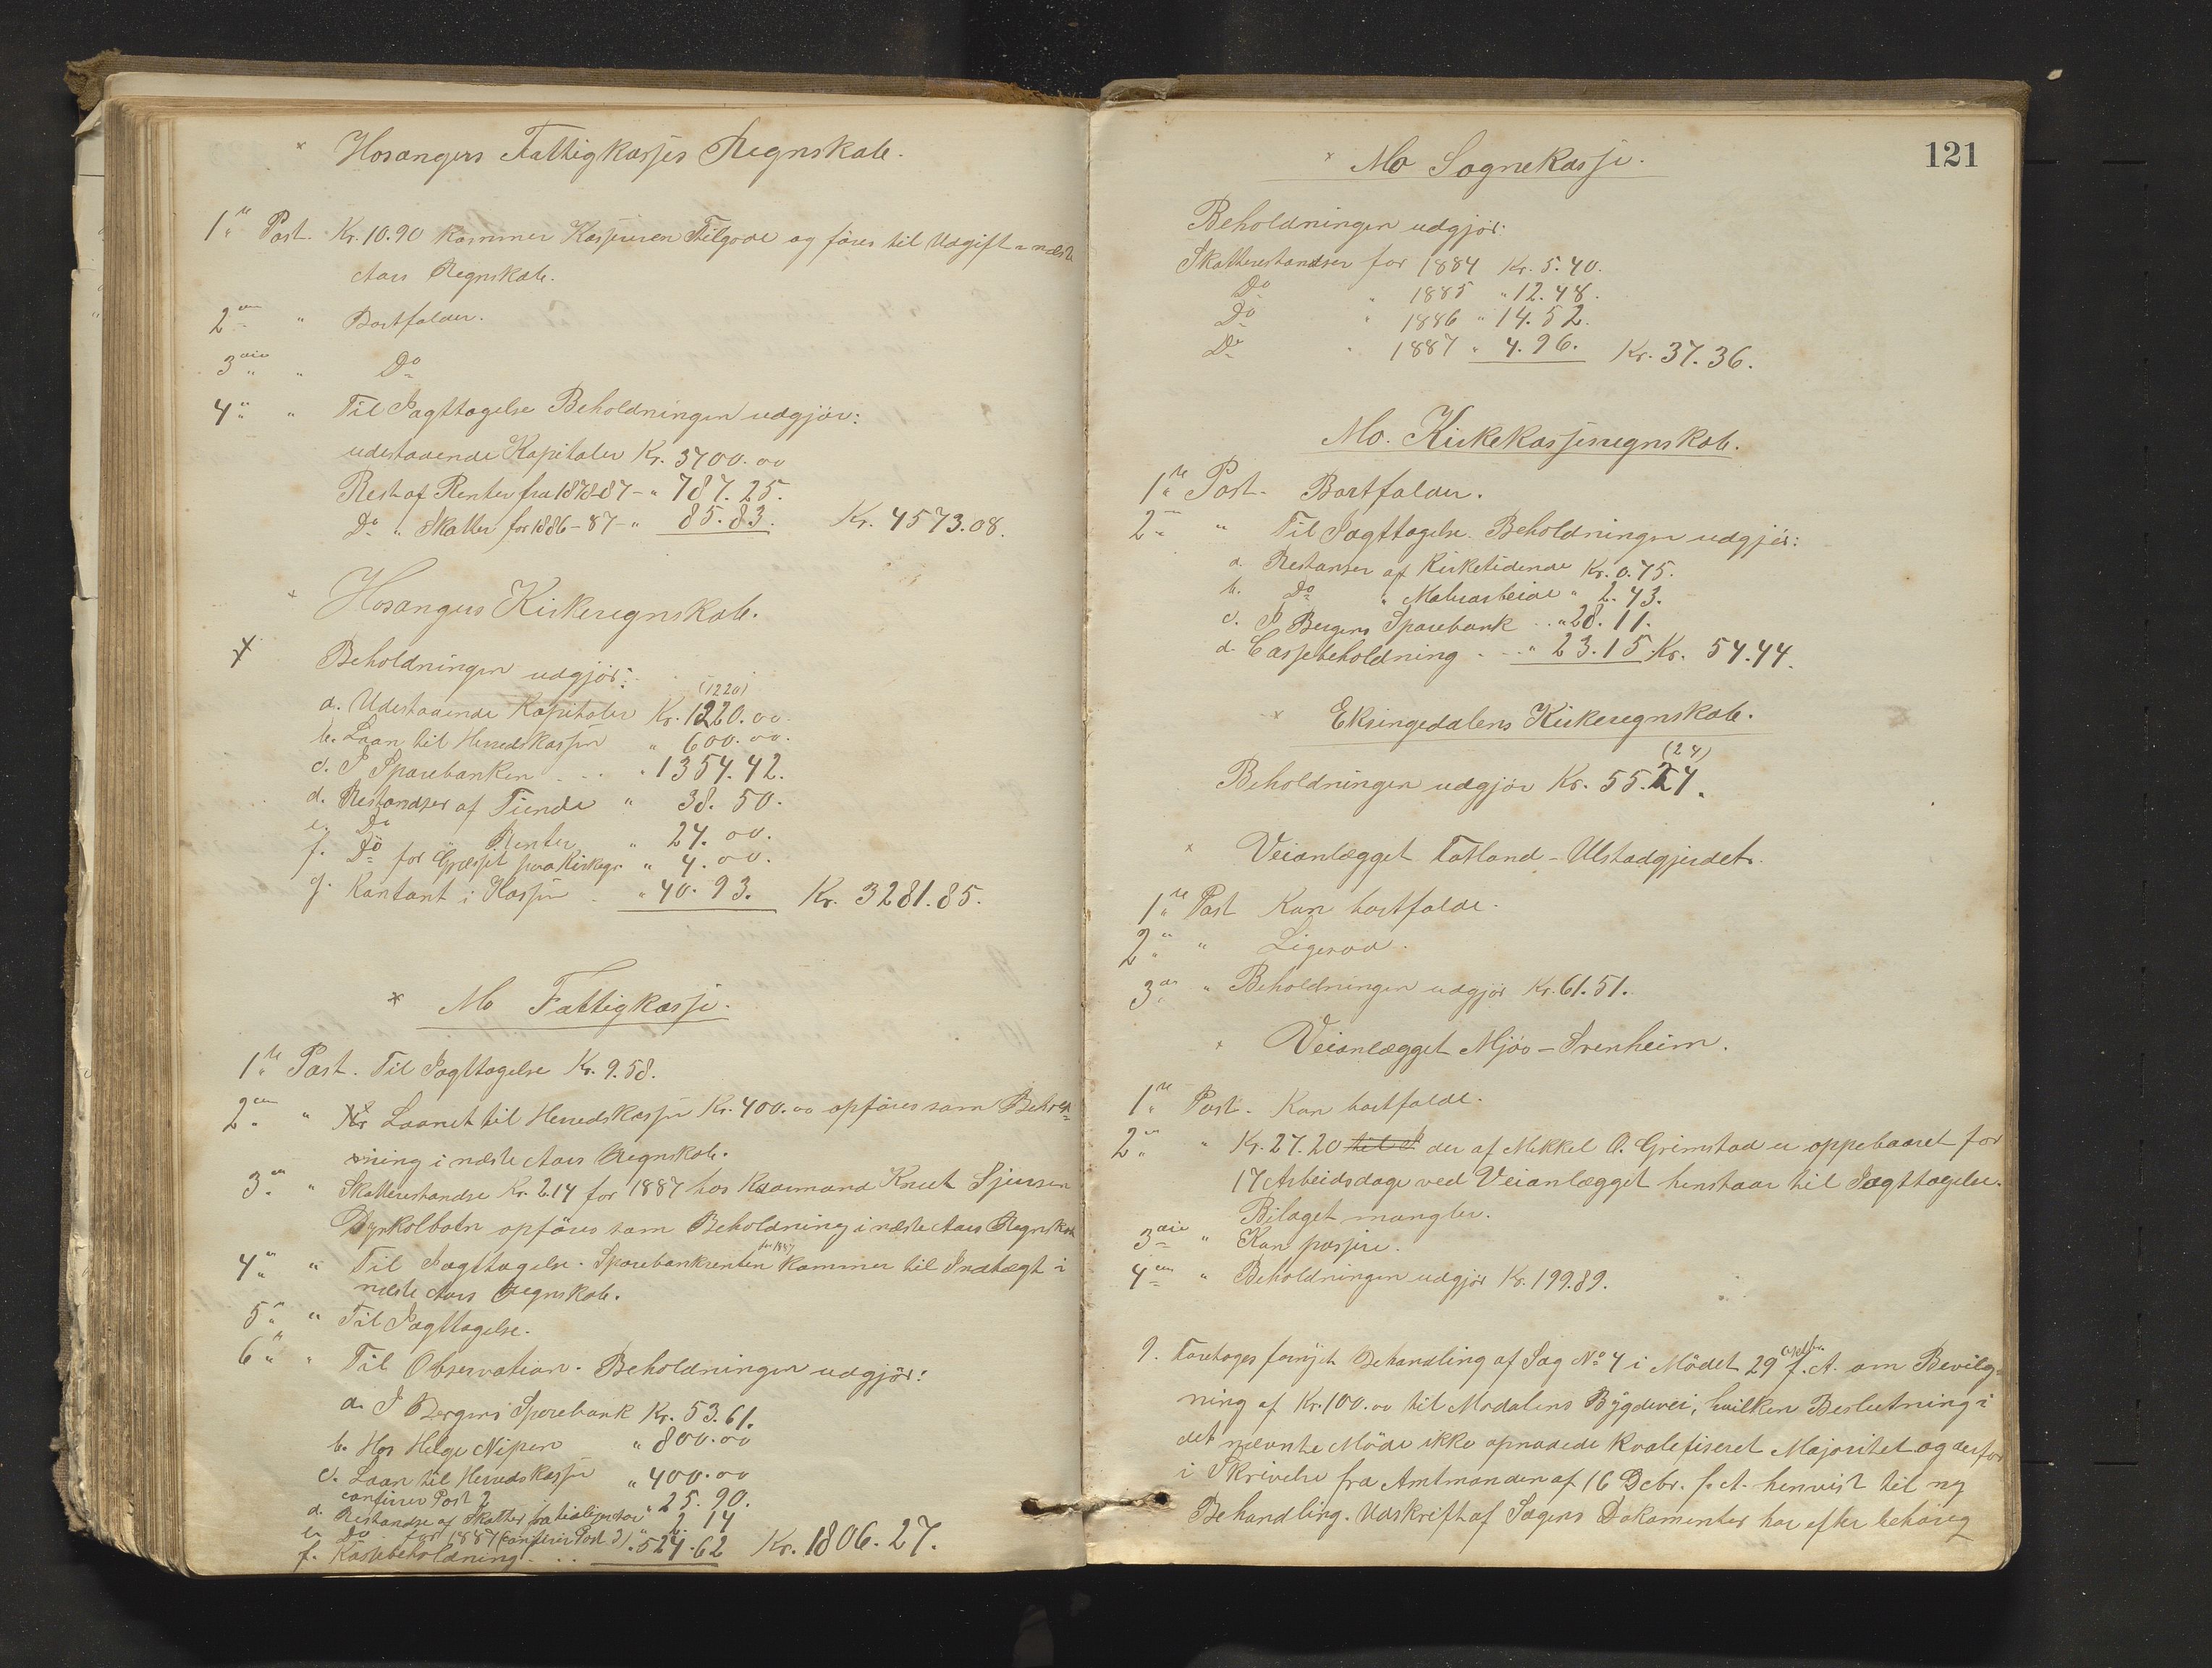 Hosangers Fattigkasses Regnskab.
1ste Post. Kr. 10.90 kommer Kassereren Tilgode og føres til Udgift i næste
Aars Regnskab.
2den " Bortfalder.
3die " Do
4de " Til Iagttagelse Beholdningen udgjør:
udestaaende Kapitaler Kr. 3700.00
Rest af Renter fra 1878-87 - " 787.25.
Do " Skatter for 1886-87 - " 85.83. Kr. 4573.08.
Hosangers Kirkeregnskab.
Beholdningen udgjør:
(1220)
a. Udestaaende Kapitaler Kr. 1220.00.
b. Laan til Herredskassen " 600.00.
c. I Sparebanken . . . " 1354.42.
d. Restandser af Tiende " 38.50.
e. Do Renter " 24.00.
f. Do for Græsset paa Kirkegr. " 4.00.
g. Kontant i Kassen . " 40.93. Kr. 3281.85.
Mo Fattigkasse.
1ste Post. Til Iagttagelse Kr. 9.58.
2den " Laanet til Herredskassen Kr. 400.00 opføres som Behold-
ning i næste Aars Regnskab.
3die " Skatterestandse Kr. 2.14 for 1887 hos Kaarmand Knut Sjursen
Dyrkolbotn opføres som Beholdning i næste Aars Regnskab
4de " Til Iagttagelse. Sparebankrenten for 1887 kommer til Indtægt i
næste Aars Regnskab.
5te " Til Iagttagelse.
6te " Til Observation. Beholdningen udgjør:
a. I Bergens Sparebank Kr. 53.61.
b. Hos Helge Nipen " 800.00
c. Laan til Herredskassen " 400.00
confierer Post 2
d. Restandse af Skatter fra tidligere Aar " 25.90.
e. Do for 1887 (confierer Post 3) " 2.14
f. Kassebeholdning . . . " 524.62 Kr. 1806.27.
121
Mo Sognekasse.
Beholdningen udgjør:
Skatterestandser for 1884 Kr. 5.40.
Do " 1885 " 12.48.
Do " 1886 " 14.52.
Do " 1887 " 4.96. Kr. 37.36.
Mo. Kirkekasseregnskab.
1ste Post. Bortfalder.
2den " Til Iagttagelse. Beholdningen udgjør:
a. Restanser af Kirketiende Kr. 0.75.
b. Do " Malerarbeide " 2.43.
c. I Bergens Sparebank . . " 28.11.
d. Cassebeholdning . . . " 23.15 Kr. 54.44.
Eksingedalens Kirkeregnskab.
(24)
Beholdningen udgjør Kr. 55.24.
Veianlægget Tatland - Ulstadgjerdet.
1ste Post Kan bortfalde.
2den " Ligesaa.
3die " Beholdningen udgjør Kr. 61.51.
Veianlægget Mjøs - Svenheim.
1ste Post. Kan bortfalde.
2den " Kr. 27.20 til I der af Mikkel O. Grimstad er oppebaaret for
17 Arbeidsdage ved Veianlægget henstaar til Iagttagelse.
Bilaget mangler.
3die " Kan passere.
4de " Beholdningen udgjør Kr. 199.89.
9. Foretoges fornyet Behandling af Sag No 4 i Mødet 29 Oktbr. f. A. om Bevilg-
ning af Kr. 100.00 til Modalens Bygdevei, hvilken Beslutning i
det nævnte Møde ikke opnaaede kvalefiseret Majoritet og derfor
i Skrivelse fra Amtmanden af 16 Dcbr. f. A. henvist til ny
Behandling. Udskrift af Sagens Dokumenter har efter behørig